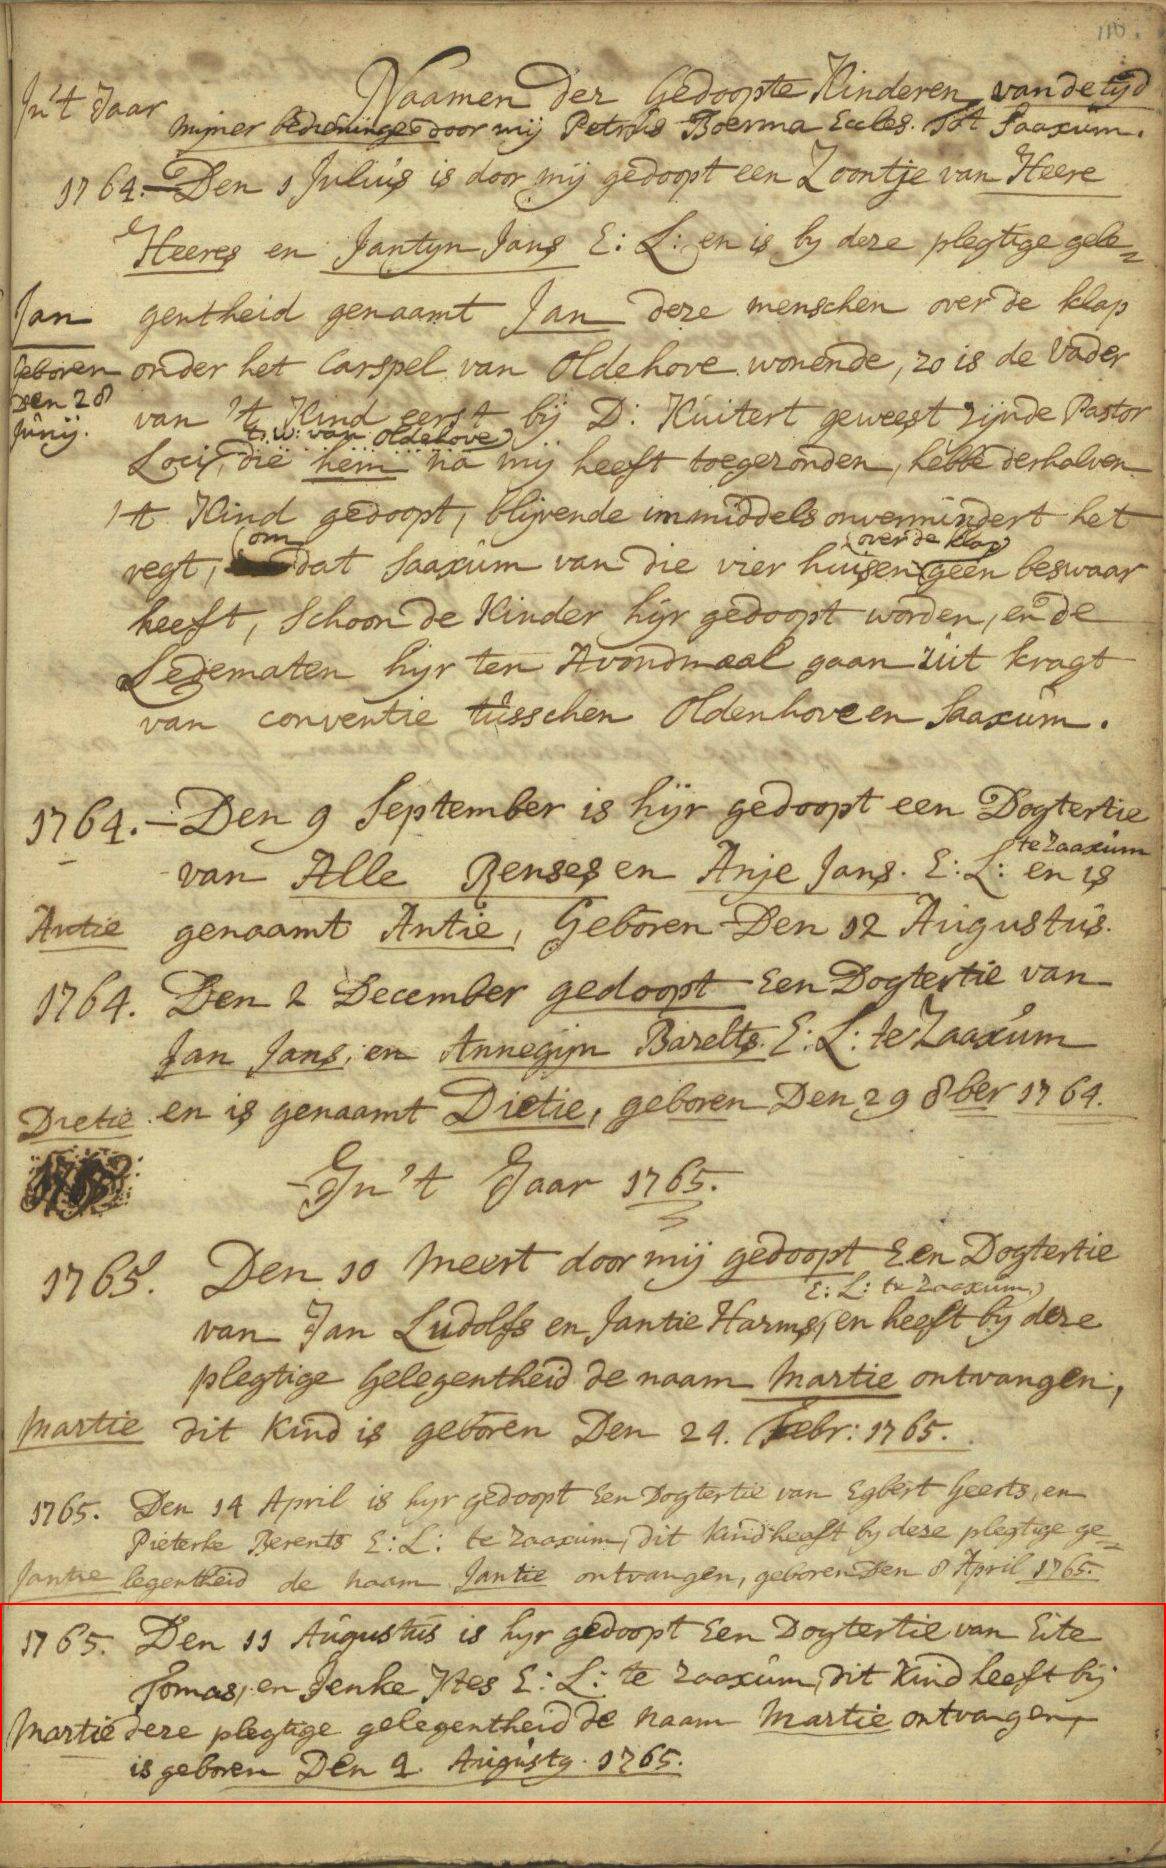 110.
In't Jaar
Naamen der Gedoopte Kinderen van de tyd
mijner bedieninge door mij Petrus Boerma Eccles. tot Saaxum.
1764. — Den 1 Julius is door mij gedoopt een Zoontje van Heere
Heeres en Jantyn Jans E: L: en is by deze plegtige gele=
Jan gentheid genaamt Jan deze menschen over de klap
Geboren onder het Carspel van Oldehove wonende, zo is de Vader
den 28 van 't Kind eerst bij D: Kuitert geweest zijnde Pastor
Junij.
t. w: van Oldehove
Loci, die hem na mij heeft toegezonden, hebbe derhalven
't Kind gedoopt, blijvende immiddels onvermindert het
om over de klap
regt, dat Saaxum van die vier huisen geen beswaar
heeft, Schoon de Kinder hijr gedoopt worden, en de
Ledematen hijr ten Avondmaal gaan uit kragt
van conventie tusschen Oldenhove en Saaxum.
1764. — Den 9 September is hijr gedoopt een Dogtertie
te Zaaxum
van Alle Renses en Anje Jans. E: L: en is
Antie genaamt Antie, Geboren Den 12 Augustus.
1764. Den 2 December gedoopt Een Dogtertie van
Jan Jans, en Annegijn Barelts. E: L: te Zaaxum
Dietie en is genaamt Dietie, geboren Den 29 8ber 1764.
In 't Jaar 1765.
1765. Den 10 Meert door mij gedoopt Een Dogtertie
E: L: te Zaaxum,
van Jan Ludolfs en Jantie Harms, en heeft by deze
plegtige Gelegentheid de naam Martie ontvangen,
Martie dit Kind is geboren Den 24. Febr: 1765.
1765. Den 14 April is hyr gedoopt Een Dogtertie van Egbert Geerts, en
Pieterke Berents E: L: te Zaaxum, dit Kind heeft by deze plegtige ge=
Jantie legentheid de naam Jantie ontvangen, geboren Den 8 April 1765.
1765. Den 11 Augustus is hyr gedoopt Een Dogtertie van Eite
Tomas, en Jenke Ites E: L: te Zaaxum, dit Kind heeft bij
Martie deze plegtige gelegentheid de Naam Martie ontvangen,
is geboren Den 2. Augusty. 1765.